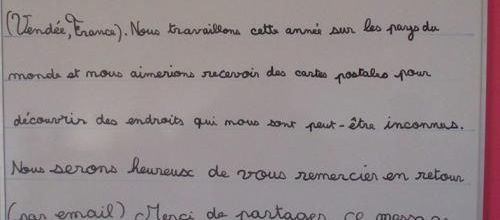 (Vendée, France). Nous travaillons cette année sur les pays du
monde et nous aimerions recevoir des cartes postales pour
découvrir des endroits qui nous sont peut-être inconnus.
Nous serons heureux de vous remercier en retour
(par email) Merci de partager ce message